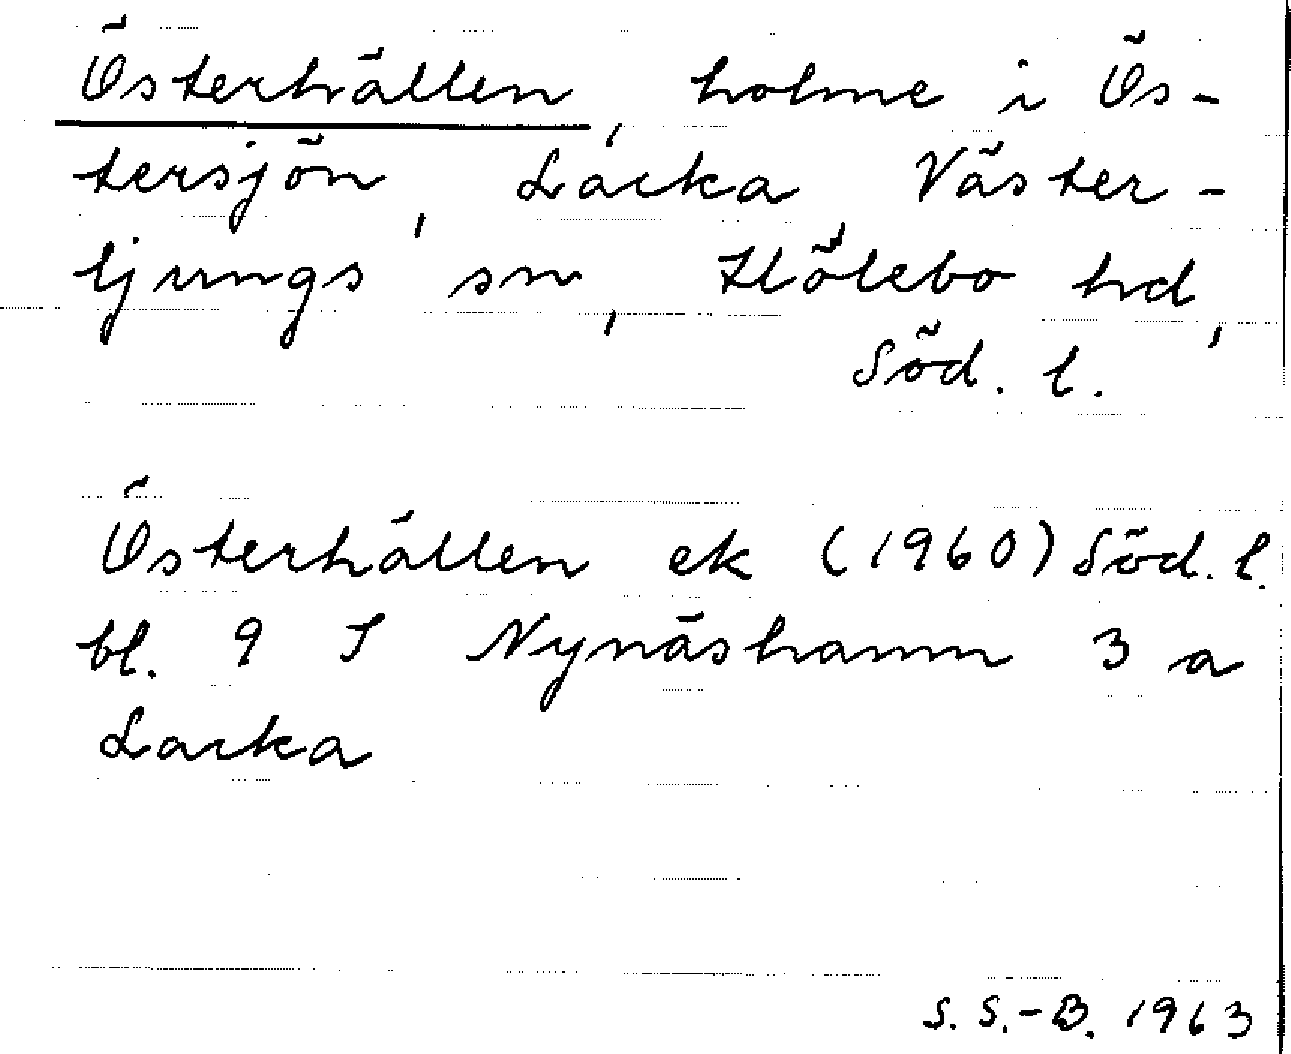 Österhällen, holme i Ös-
tersjön, Lacka, Väster-
ljungs sn, Hölebo hd,
Söd. l.
Österhällen ek (1960) Söd. l.
bl. 9 I Nynäshamn 3 a
Lacka
S. S.-B. 1963